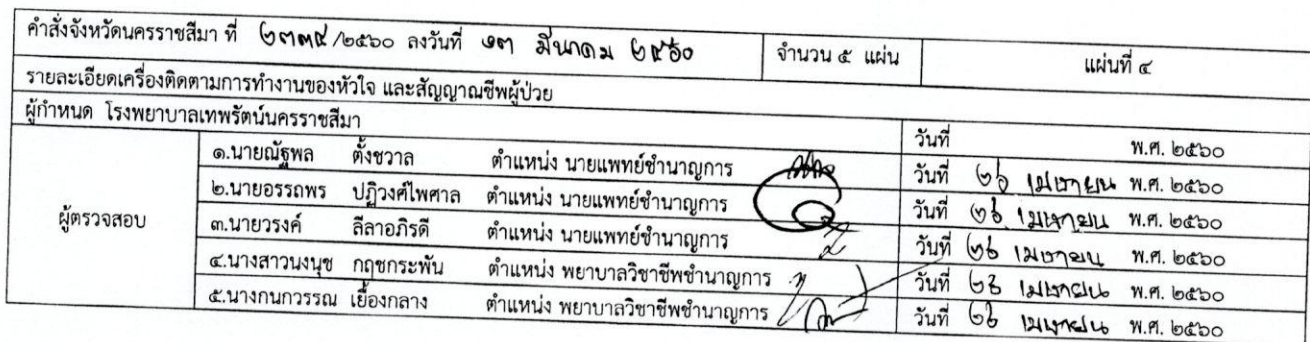 คำสั่งจังหวัดนครราชสีมา ที่ ๒๓๓๙/๒๕๖๐ ลงวันที่ ๑๓ มีนาคม ๒๕๖๐ จำนวน ๕ แผ่น แผ่นที่ ๔
รายละเอียดเครื่องติดตามการทำงานของหัวใจ และสัญญาณชีพผู้ป่วย
ผู้กำหนด โรงพยาบาลเทพรัตน์นครราชสีมา วันที่ พ.ศ. ๒๕๖๐
ผู้ตรวจสอบ
๑.นายณัฐพล ตั้งชวาล ตำแหน่ง นายแพทย์ชำนาญการ วันที่ ๒๖ เมษายน พ.ศ. ๒๕๖๐
๒.นายอรรถพร ปฏิวงศ์ไพศาล ตำแหน่ง นายแพทย์ชำนาญการ วันที่ ๒๖ เมษายน พ.ศ. ๒๕๖๐
๓.นายวรงค์ ลีลาอภิรดี ตำแหน่ง นายแพทย์ชำนาญการ วันที่ ๒๖ เมษายน พ.ศ. ๒๕๖๐
๔.นางสาวนงนุช กฤชกระพัน ตำแหน่ง พยาบาลวิชาชีพชำนาญการ วันที่ ๒๖ เมษายน พ.ศ. ๒๕๖๐
๕.นางกนกวรรณ เยื้องกลาง ตำแหน่ง พยาบาลวิชาชีพชำนาญการ วันที่ ๒๖ เมษายน พ.ศ. ๒๕๖๐